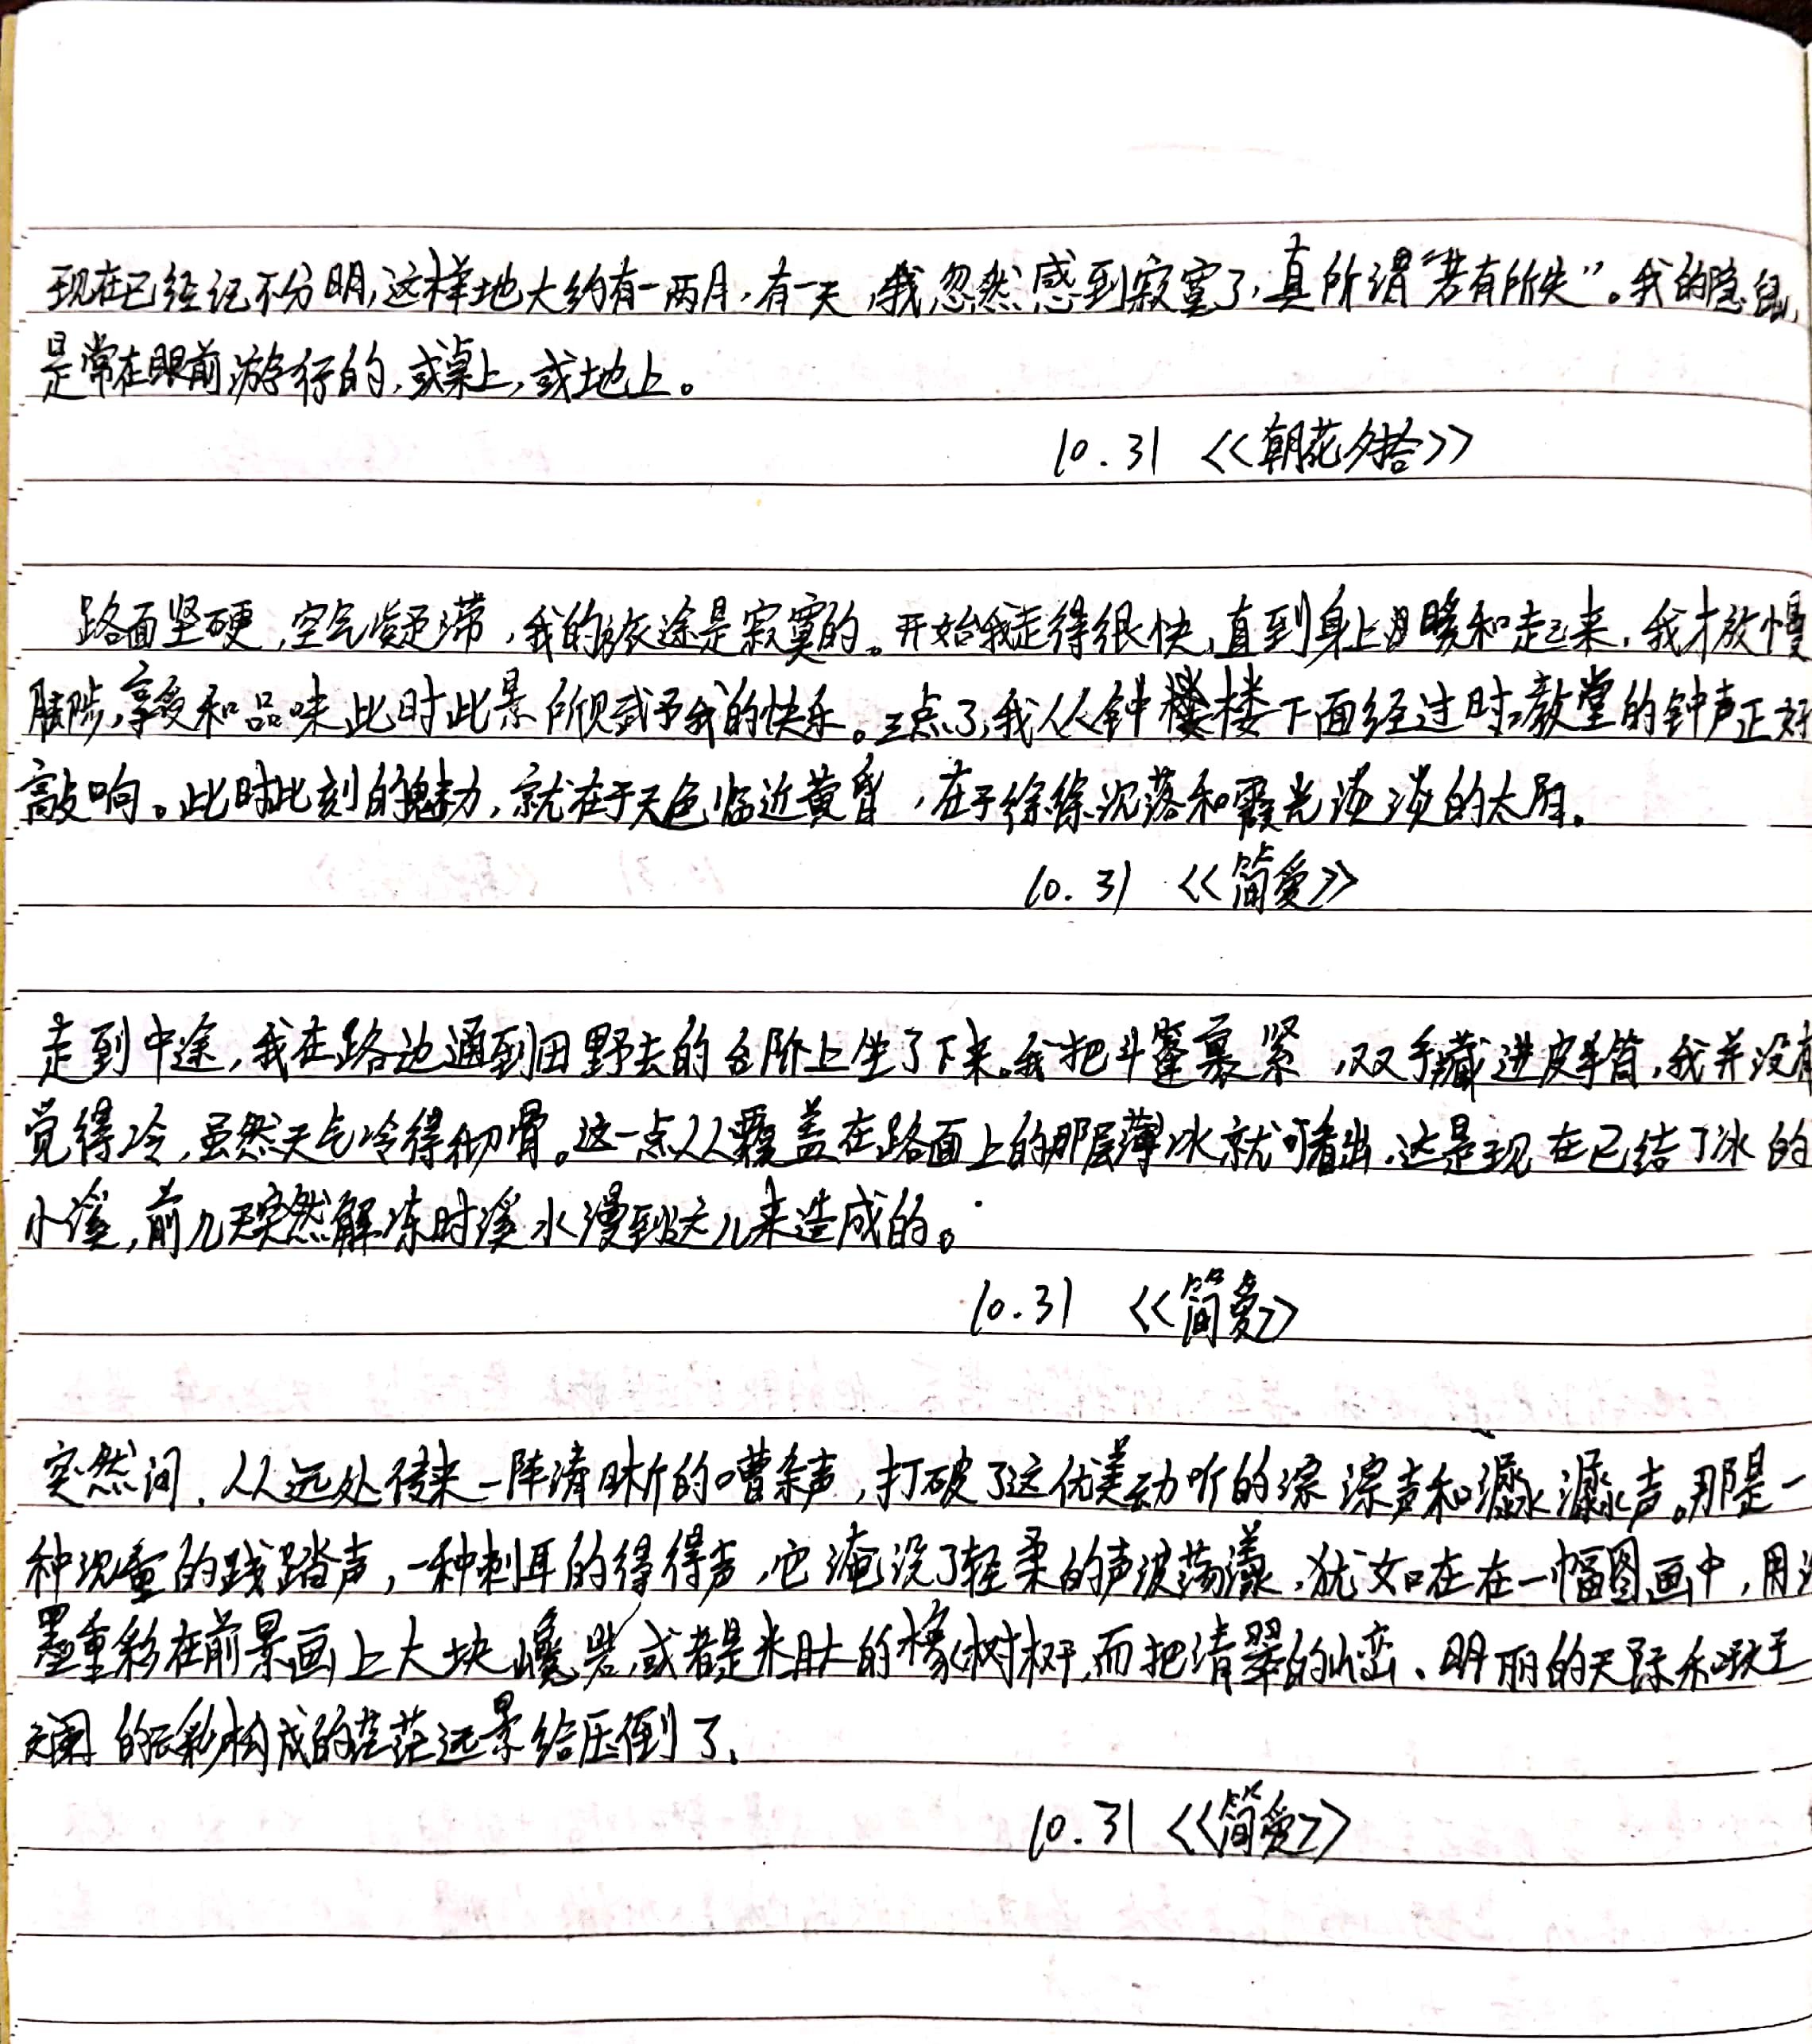 现在已经记不分明,这样地大约有一两月,有一天,我忽然感到寂寞了,真所谓“若有所失”。我的隐鼠,
是常在眼前游行的,或桌上,或地上。
10.31 <<朝花夕拾>>
路面坚硬,空气凝滞,我的旅途是寂寞的。开始我走得很快,直到身上暖和起来,我才放慢
脚步,享受和品味此时此景所赋予我的快乐。三点了,我从钟楼下面经过时,教堂的钟声正好
敲响。此时此刻的魅力,就在于天色临近黄昏,在于徐徐沉落和霞光淡淡的太阳。
10.31 <<简爱>>
走到中途,我在路边通到田野去的台阶上坐了下来。我把斗篷裹紧,双手藏进皮手筒,我并没有
觉得冷,虽然天气冷得彻骨。这一点从覆盖在路面上的那层薄冰就可看出,这是现在已结了冰的
小溪,前几天突然解冻时溪水漫到这儿来造成的。
10.31 <<简爱>>
突然间,从远处传来一阵清晰的嘈杂声,打破了这优美动听的淙淙声和潺潺声。那是一
种沉重的践踏声,一种刺耳的得得声,它淹没了轻柔的声波荡漾,犹如在在一幅图画中,用
墨重彩在前景画上大块巉岩,或者是粗大的橡树树干,而把清翠的山峦、明丽的天际和
斑斓的云彩构成的茫茫远景给压倒了。
10.31 <<简爱>>